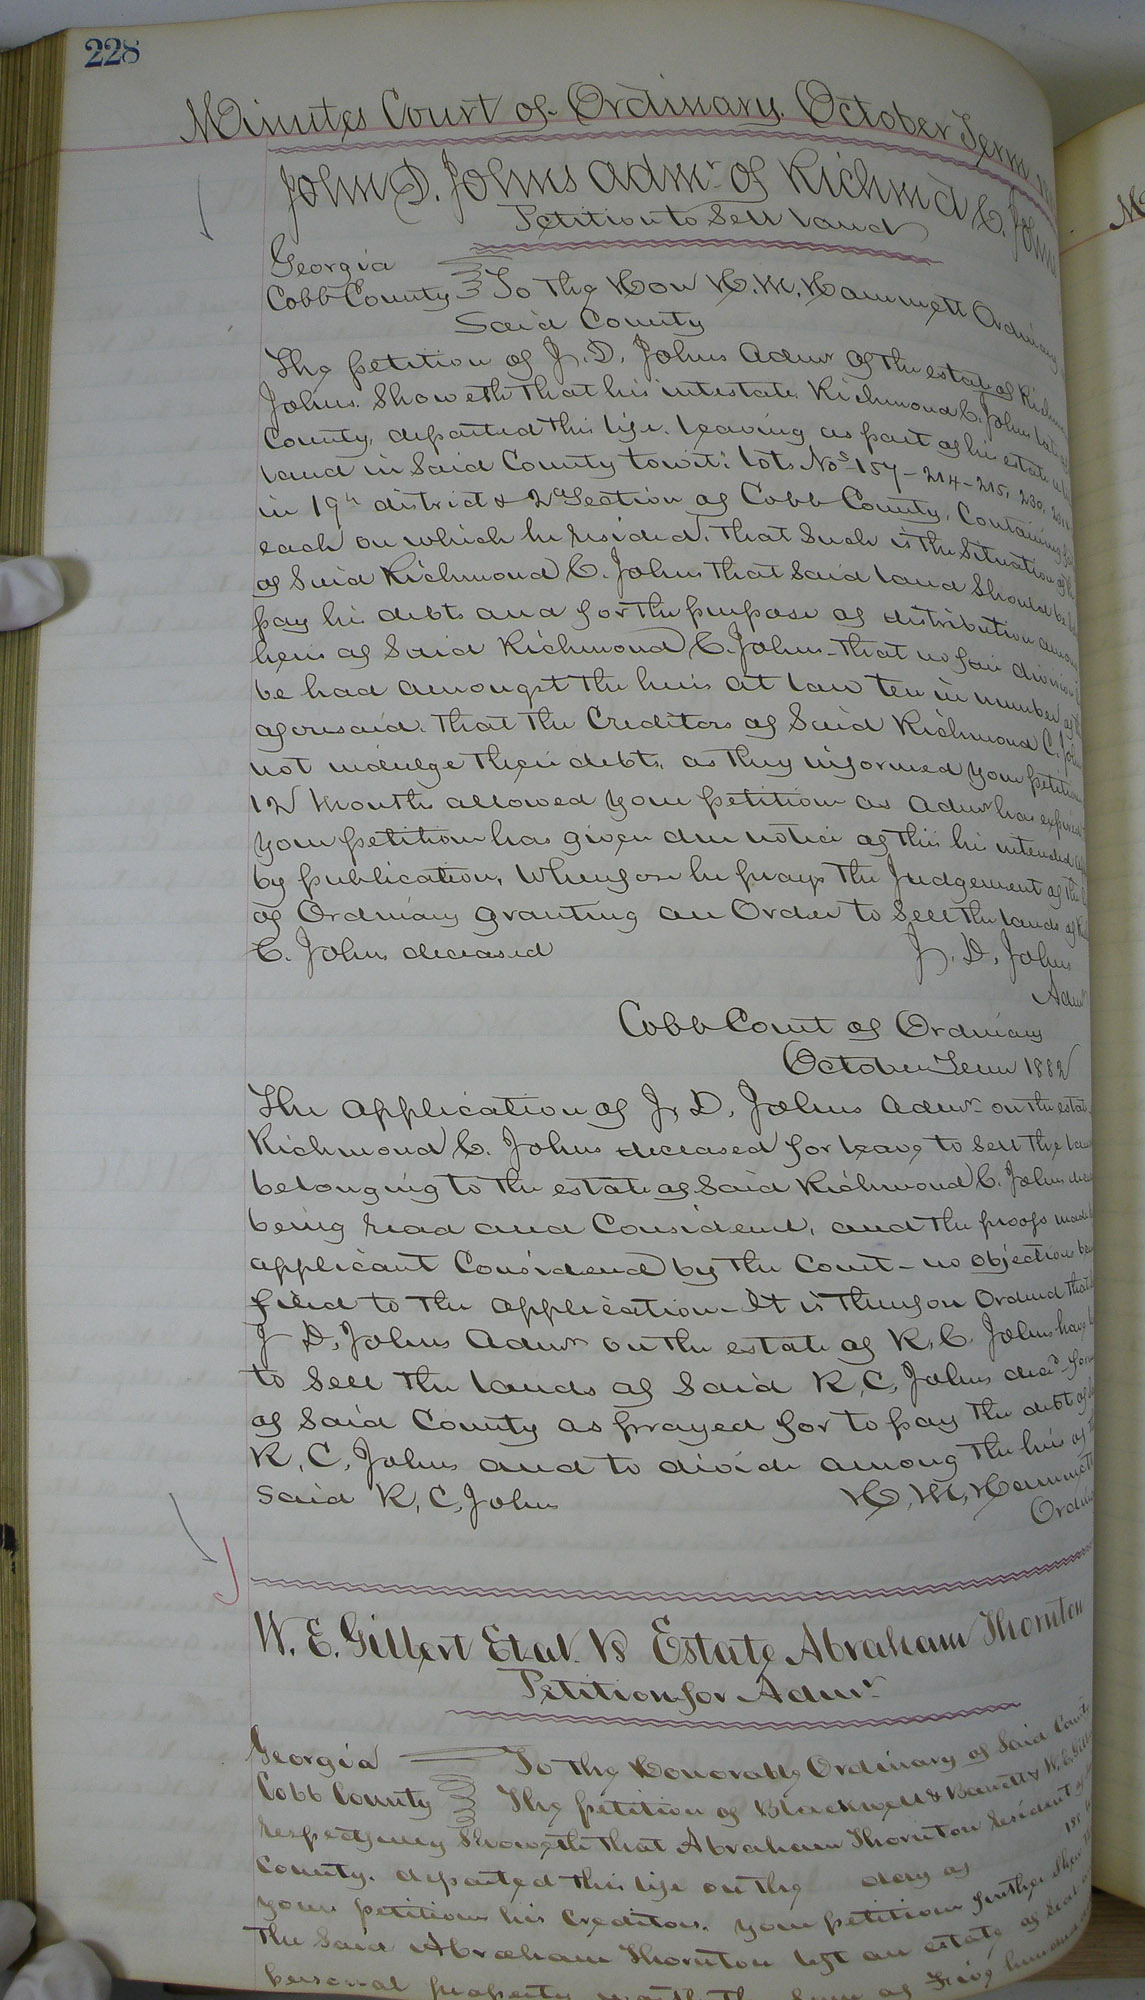 228
Minutes Court of Ordinary October Term
John D. Johns Admr of Richmd C. Johns
Petition to Sell Land
Georgia
Cobb County To the Hon H. M. Hammett Ordinary
Said County
The petition of J. D. Johns Admr of the estate of
Johns. Showeth that his intestate Richmond C. Johns late
County, departed this life. Leaving as part of his estate
land in Said County towit: Lots Nos 157-214-215, 230,
in 19th district & 2d Section of Cobb County, Containing
each on which he resided. That Such is the Situation of
of Said Richmond C. Johns that Said land Should be
pay his debts and for the purpose of distribution among
heirs of Said Richmond C. Johns - that no fair division
be had amongst the heirs at law ten in number
aforesaid. That the Creditors of Said Richmond C.
not indulge their debts, as they informed your
12 Months allowed your petition as Admr has expired
your petition has given due notice of this his intended
by publication. Wherefore he prays the Judgement of the
of Ordinary granting an Order to Sell the lands of
C. Johns deceased J. D. Johns
Admr
Cobb Court of Ordinary
October Term 1882
The application of J. D. Johns Admr on the estate
Richmond C. Johns deceased for leave to Sell the
belonging to the estate of Said Richmond C. Johns
being read and Considered, and the proofs made
applicant Considered by the Court - no objection
filed to the application - It is therefore Ordered that
J D. Johns Admr on the estate of R. C. Johns have
to Sell the lands of Said R, C, Johns decd
of Said County as prayed for to pay the debt of
R, C, Johns and to divide among the heirs of
Said R, C, Johns H, M, Hammett
W. E. Gilbert Et al. Vs Estate Abraham Thornton
Petition for Admr
Georgia To the Honorable Ordinary of Said County
Cobb County The petition of Blackwell & Barrett & W. E.
respectfully Showeth that Abraham Thornton resident of
County. departed this life on the day of 18
your petitions his Creditors. your petitions further Shew
The Said Abraham Thornton left an estate of real
personal property worth the Sum of Five hundred